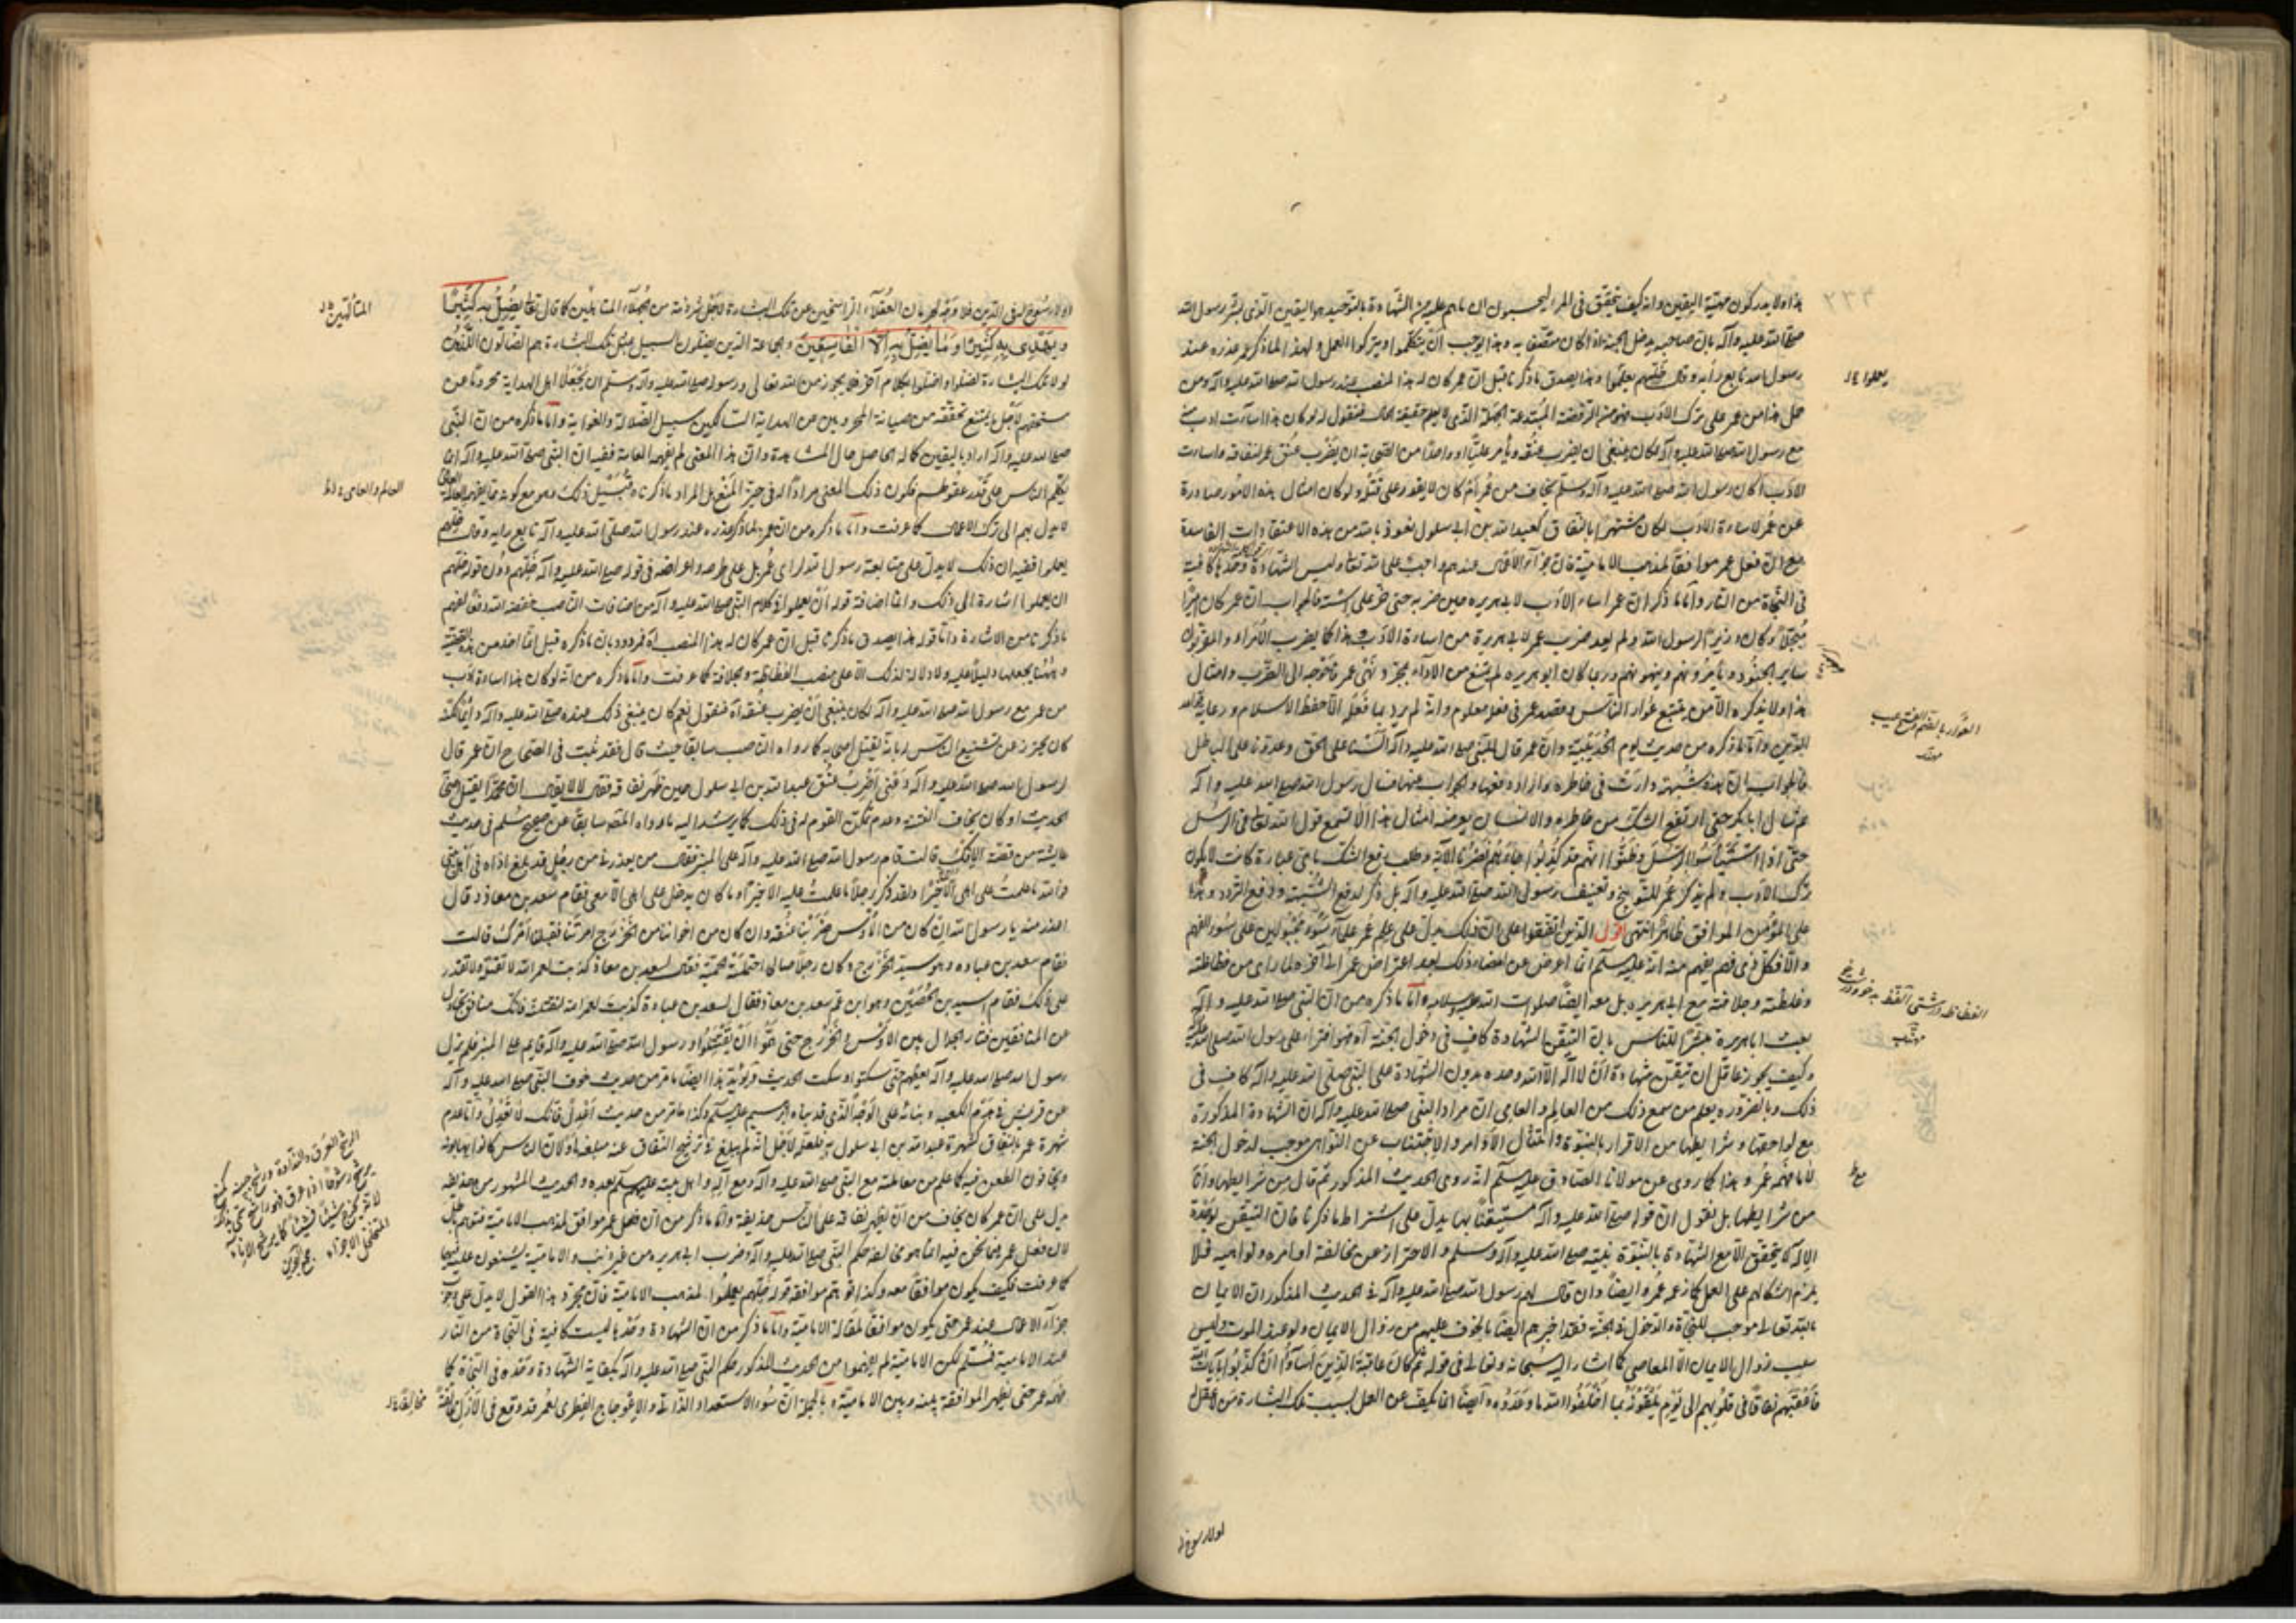 هذا ولا يدركون مهيّة اليقين وانه كيف يتحقق في المرء ليحسبون ان ما هم عليه من الشهادة بالتوحيد هو اليقين الذي بشر رسول الله
صلى الله عليه وآله بان صاحبه يدخل الجنة اذا كان متصفا به وهذا يوجب ان يتكلموا ويتركوا العمل ولهذا لما ذكر عمر عذره عند
رسول الله تابع رأيه وقال خلّهم يعملوا وهذا يصدق ما ذكرنا قبل ان عمر كان له هذا المنصب عند رسول الله صلى الله عليه وآله ومن
حمل هذا من عمر على ترك الادب فهو من الرفضة المبتدعة الجهلة الذي لا يعلم حقيقة الحال فنقول له لو كان هذا اساءت ادب
مع رسول الله صلى الله عليه وآله لكان ينبغي ان يضرب عنقه ويأمر عليّا او واحدا من الصحابة ان يضرب عنق عمر لنفاقه واساءت
الادب اكان رسول الله صلى الله عليه وآله وسلّم يخاف من عمر أم كان لا يقدر على قتله ولو كان امثال هذه الامور صادرة
عن عمر لاساءة الادب لكان مشتهرا بالنفاق كعبد الله بن ابي سلول نعوذ بالله من هذه الاعتقادات الفاسدة
مع ان فعل عمر موافق لمذهب الامامية فان جزاء الاعمال عندهم واجب على الله تعالى وليس الشهادة وحدها كافية
في النجاة من النار وأمّا ما ذكر ان عمر اساء الادب لابي هريره حين ضربه حتى خرّ على استه فالجواب ان عمر كان اميرا
مبجّلا وكان وزيرا لرسول الله ولم يعد ضرب عمر لابي هريرة من اساءة الادب هذا كما يضرب الامراء والمقربون
ساير الجنود ويأمرونهم وينهونهم وربما كان ابو هريره لم يمتنع من الاداء بمجرد نهي عمر فاحتوجه الى الضرب وامثال
هذا ولا يذكره الا من يتتبع عوار الناس وقصد عمر في فعله معلوم وانه لم يرد بما فعله الا حفظ الاسلام ورعاية قواعد
الدين وامّا ما ذكره من حديث يوم الحديبية وان عمر قال للنبي صلى الله عليه وآله ألسنا على الحق وعدونا على الباطل
فالجواب ان هذه شبهة دارت في خاطره واراد دفعها والجواب عنها فسأل رسول الله صلى الله عليه وآله
ثم سأل ابا بكر حتى ارتفع الشك من خاطره والانسان يعرضه امثال هذا الا تسمع قول الله تعالى في الرسل
حتى اذا استيئس الرسل وظنوا انهم قد كذبوا جاءهم نصرنا الآية وطلب رفع الشك باي عبارة كانت لا يكون
ترك الادب ولم يذكر عمر للتوبيخ وتعنيف رسول الله صلى الله عليه وآله بل ذكر لدفع الشبهة ودفع التردد وهذا
على المؤمن الموافق ظاهر انتهى اقول الذين اتفقوا على ان ذلك يدل على علم عمر علماء سوء مجبولين على سوء الفهم
والا فكل ذي فهم يفهم منه انه عليه السلام انما اعرض عن امضاء ذلك بعد اعتراض عمر الى آخره لما راى من فظاظته
وغلظته وجلافته مع ابي هريره بل معه ايضا صلوات الله عليه وسلامه وأمّا ما ذكره من ان النبي صلى الله عليه وآله
بعث ابا هريرة مبشرا للناس بان التيقن بالشهادة كاف في دخول الجنة آه فهو افتراء على رسول الله صلى الله عليه
وكيف يجوز عاقل ان تيقن شهادة ان لا اله الا الله وحده بدون الشهادة على النبي صلى الله عليه وآله كاف في
ذلك وبالضرورة يعلم من سمع ذلك من العالم والعامي ان مراد النبي صلى الله عليه وآله ان الشهادة المذكورة
مع لواحقها وشرايطها من الاقرار بالنبوة وامتثال الاوامر والاجتناب عن النواهي موجب لدخول الجنة
لا ما فهمه عمر وهذا كما روي عن مولانا الصادق عليه السلام انه روى الحديث المذكور ثم قال من شرايطها وانا
من شرايطها بل نقول ان قوله صلى الله عليه وآله مستيقنا بها يدل على اشتراط ما ذكرنا فان التيقن بوحدة
الاله لا يتحقق الا مع الشهادة بالنبوة نبيه صلى الله عليه وآله وسلم والاحتراز عن مخالفة اوامره ونواهيه فلا
يلزم اتكالهم على العمل كما زعمه عمر ايضا وان قال لهم رسول الله صلى الله عليه وآله في الحديث المذكور ان الايمان
بالله تعالى موجب للنجاة والدخول في الجنة فقد اخبرهم ايضا بالخوف عليهم من زوال الايمان ولو عند الموت وليس
سبب زوال الايمان الا المعاصي كما اشار اليه سبحانه وتعالى في قوله ثم كان عاقبة الذين اساؤا ان كذبوا بآيات الله
فاعقبهم نفاقا في قلوبهم الى يوم يلقونه بما اخلفوا الله ما وعدوه وايضا انما يكف عن العمل بسبب تلك البشارة من لا عقل
يعملوا
العوار بالضم والفتح عيب
مهذب
مهذب
مع
لا ولا رسوخ
لا ولا رسوخ في الدين فلا وجه لحرمان العقلاء الراسخين عن تلك البشارة لاجل شرذمة من الجهلاء المتألهين كما قال تعالى يضل به كثيرا
ويهدي به كثيرا وما يضل به الا الفاسقين والجماعة الذين يضلون السبيل بمثل تلك البشارة هم الضالون الذين
لولا تلك البشارة لضلوا واضلوا بكلام آخر فلا يجوز من الله تعالى ورسوله صلى الله عليه وآله وسلم ان يجعلا اهل الهداية محرومين عن
حقهم لاجل ما يمتنع تحققه من صيانة المحرومين من الهداية السالكين سبيل الضلالة والغواية وأمّا ما ذكره من ان النبي
صلى الله عليه وآله اراد باليقين كماله الحاصل حال المشاهدة وان هذا المعنى لم يفهمه العامة ففيه ان النبي صلى الله عليه وآله انما
يكلم الناس على قدر عقولهم فكون ذلك المعنى مرادا له في حيز المنع بل المراد ما ذكرنا وقبيل ذلك وهو مع كونه مما يفهمه العالم
لا يدل بهم الى ترك الاعمال كما عرفت وأمّا ما ذكره من ان عمر لما ذكر عذره عند رسول الله صلى الله عليه وآله تابع رايه وقال خلهم
يعملوا ففيه ان ذلك لا يدل على متابعة رسول الله لراى عمر بل على طرحه واعراضه في قوله صلى الله عليه وآله خلهم دون قوله خلهم
ان يعملوا اشارة الى ذلك وانما اضافة قوله ان يعملوا الى كلام النبي صلى الله عليه وآله من اضافات الناصب خفضه الله دفعا لفهم
ما ذكرنا من الاشارة وأمّا قوله هذا يصدق ما ذكرنا قبل ان عمر كان له هذا المنصب آه فمردود بان ما ذكره قبل انما اخذ من هذه القضية
وههنا يجعلها دليلا عليه ولا دلالة لذلك الا على منصب الفظاظة والجلافة كما عرفت وأمّا ما ذكره من انه لو كان هذا اساءة ادب
من عمر مع رسول الله صلى الله عليه وآله لكان ينبغي ان يضرب عنقه آه فنقول نعم كان ينبغي ذلك عنده صلى الله عليه وآله
كان يحترز عن تشنيع الناس بانه يقتل اصحابه كما رواه الناصب سابقا حيث قال فقد ثبت في الصحاح ان عمر قال
لرسول الله صلى الله عليه وآله دعني اضرب عنق عبد الله بن ابي سلول حين ظهر نفاقه فقال لا لا يقال ان محمدا يقتل اصحابه
الحديث او كان يخاف الفتنة وعدم تمكن القوم له في ذلك كما يرشد اليه ما رواه المصنف سابقا عن صحيح مسلم في حديث
عايشة من قصة الافك قالت قام رسول الله صلى الله عليه وآله على المنبر فقال من يعذرني من رجل قد بلغ اذاه في اهل بيتي
فوالله ما علمت على اهلي الا خيرا ولقد ذكر رجلا ما علمت عليه الا خيرا وما كان يدخل على اهلي الا معي فقام سعد بن معاذ وقال
اعذر منه يا رسول الله ان كان من الاوس ضربنا عنقه وان كان من اخواننا من الخزرج امرتنا ففعلنا امرك قالت
فقام سعد بن عباده وهو سيد الخزرج وكان رجلا صالحا احتملته الحمية فقال لسعد بن معاذ كذبت لعمر الله لا تقتله ولا تقدر
على ذلك فقام اسيد بن الحضين وهو ابن عم سعد بن معاذ فقال لسعد بن عبادة كذبت لعمر الله لنقتلنه فانك منافق تجادل
عن المنافقين فثار الجدال بين الاوس والخزرج حتى همّوا ان يقتتلوا ورسول الله صلى الله عليه وآله قايم على المنبر فلم يزل
رسول الله صلى الله عليه وآله يخفضهم حتى سكتوا وسكت الحديث ويؤيد هذا ايضا ما مر من حديث خوف النبي صلى الله عليه وآله
عن قريش في هدم الكعبه وبنائه على الوجه الذي قد بناه ابرهيم عليه السلام وكذا ما مر من حديث اعدل فانك لم تعدل وأمّا عدم
شهرة عمر بالنفاق كشهرة عبد الله بن ابي سلول به فلعله لاجل انه لم يبلغ في ترشح النفاق عنه مبلغه اولان الناس كانوا يهابونه
ويخافون الطعن فيه كما علم من معاملته مع النبي صلى الله عليه وآله ومع آله واهل بيته عليهم السلام بعده والحديث المشهور من حذيفه
يدل على ان عمر كان يخاف من ان يظهر نفاقه على الناس حذيفة وأمّا ما ذكر من ان فعل عمر موافق لمذهب الامامية فتوهم باطل
لان فعل عمر فيما نحن فيه انما هو مخالفة حكم النبي صلى الله عليه وآله وضرب ابي هريره من غير ذنب والامامية يشنعون عليه فيها
كما عرفت فكيف يكون موافقا معه وكذا لو يتم موافقة قوله خلهم يعملوا لمذهب الامامية فان مجرد هذا القول لا يدل على وجوب
جزاء الاعمال عند عمر حتى يكون موافقا لمقالة الامامية وأمّا ما ذكر من ان الشهادة وحدها ليست كافية في النجاة من النار
عند الامامية فمسلّم لكن الامامية لم يفهموا من الحديث المذكور حكم النبي صلى الله عليه وآله بكفاية الشهادة وحده في النجاة كما
فهمه عمر حتى يظهر الموافقة بينه وبين الامامية وبالجملة ان سوء الاستعداد الذاتي والاعوجاج الفطري لعمر قد وقع في الازل
المتألهين
العالم والعامي